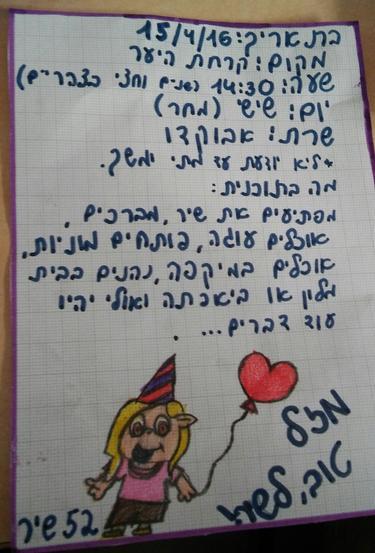 בתאריך: 15/4/16
מקום: קרחת היער
שעה: 14:30 (שתיים וחצי בצהריים)
יום: שישי (מחר)
שרתי: אבוקדו
*לא יודעת עד מתי ימשך.
מה בתוכנית:
מפתיעים את שיר, מברכים,
אוכלים עוגה, פותחים מתנות,
אוכלים במיקפה, נהנים בבית
מלון או ביאכתה ואולי יהיו
עוד דברים... .
מזל
טוב, לשיר!
שיר 52